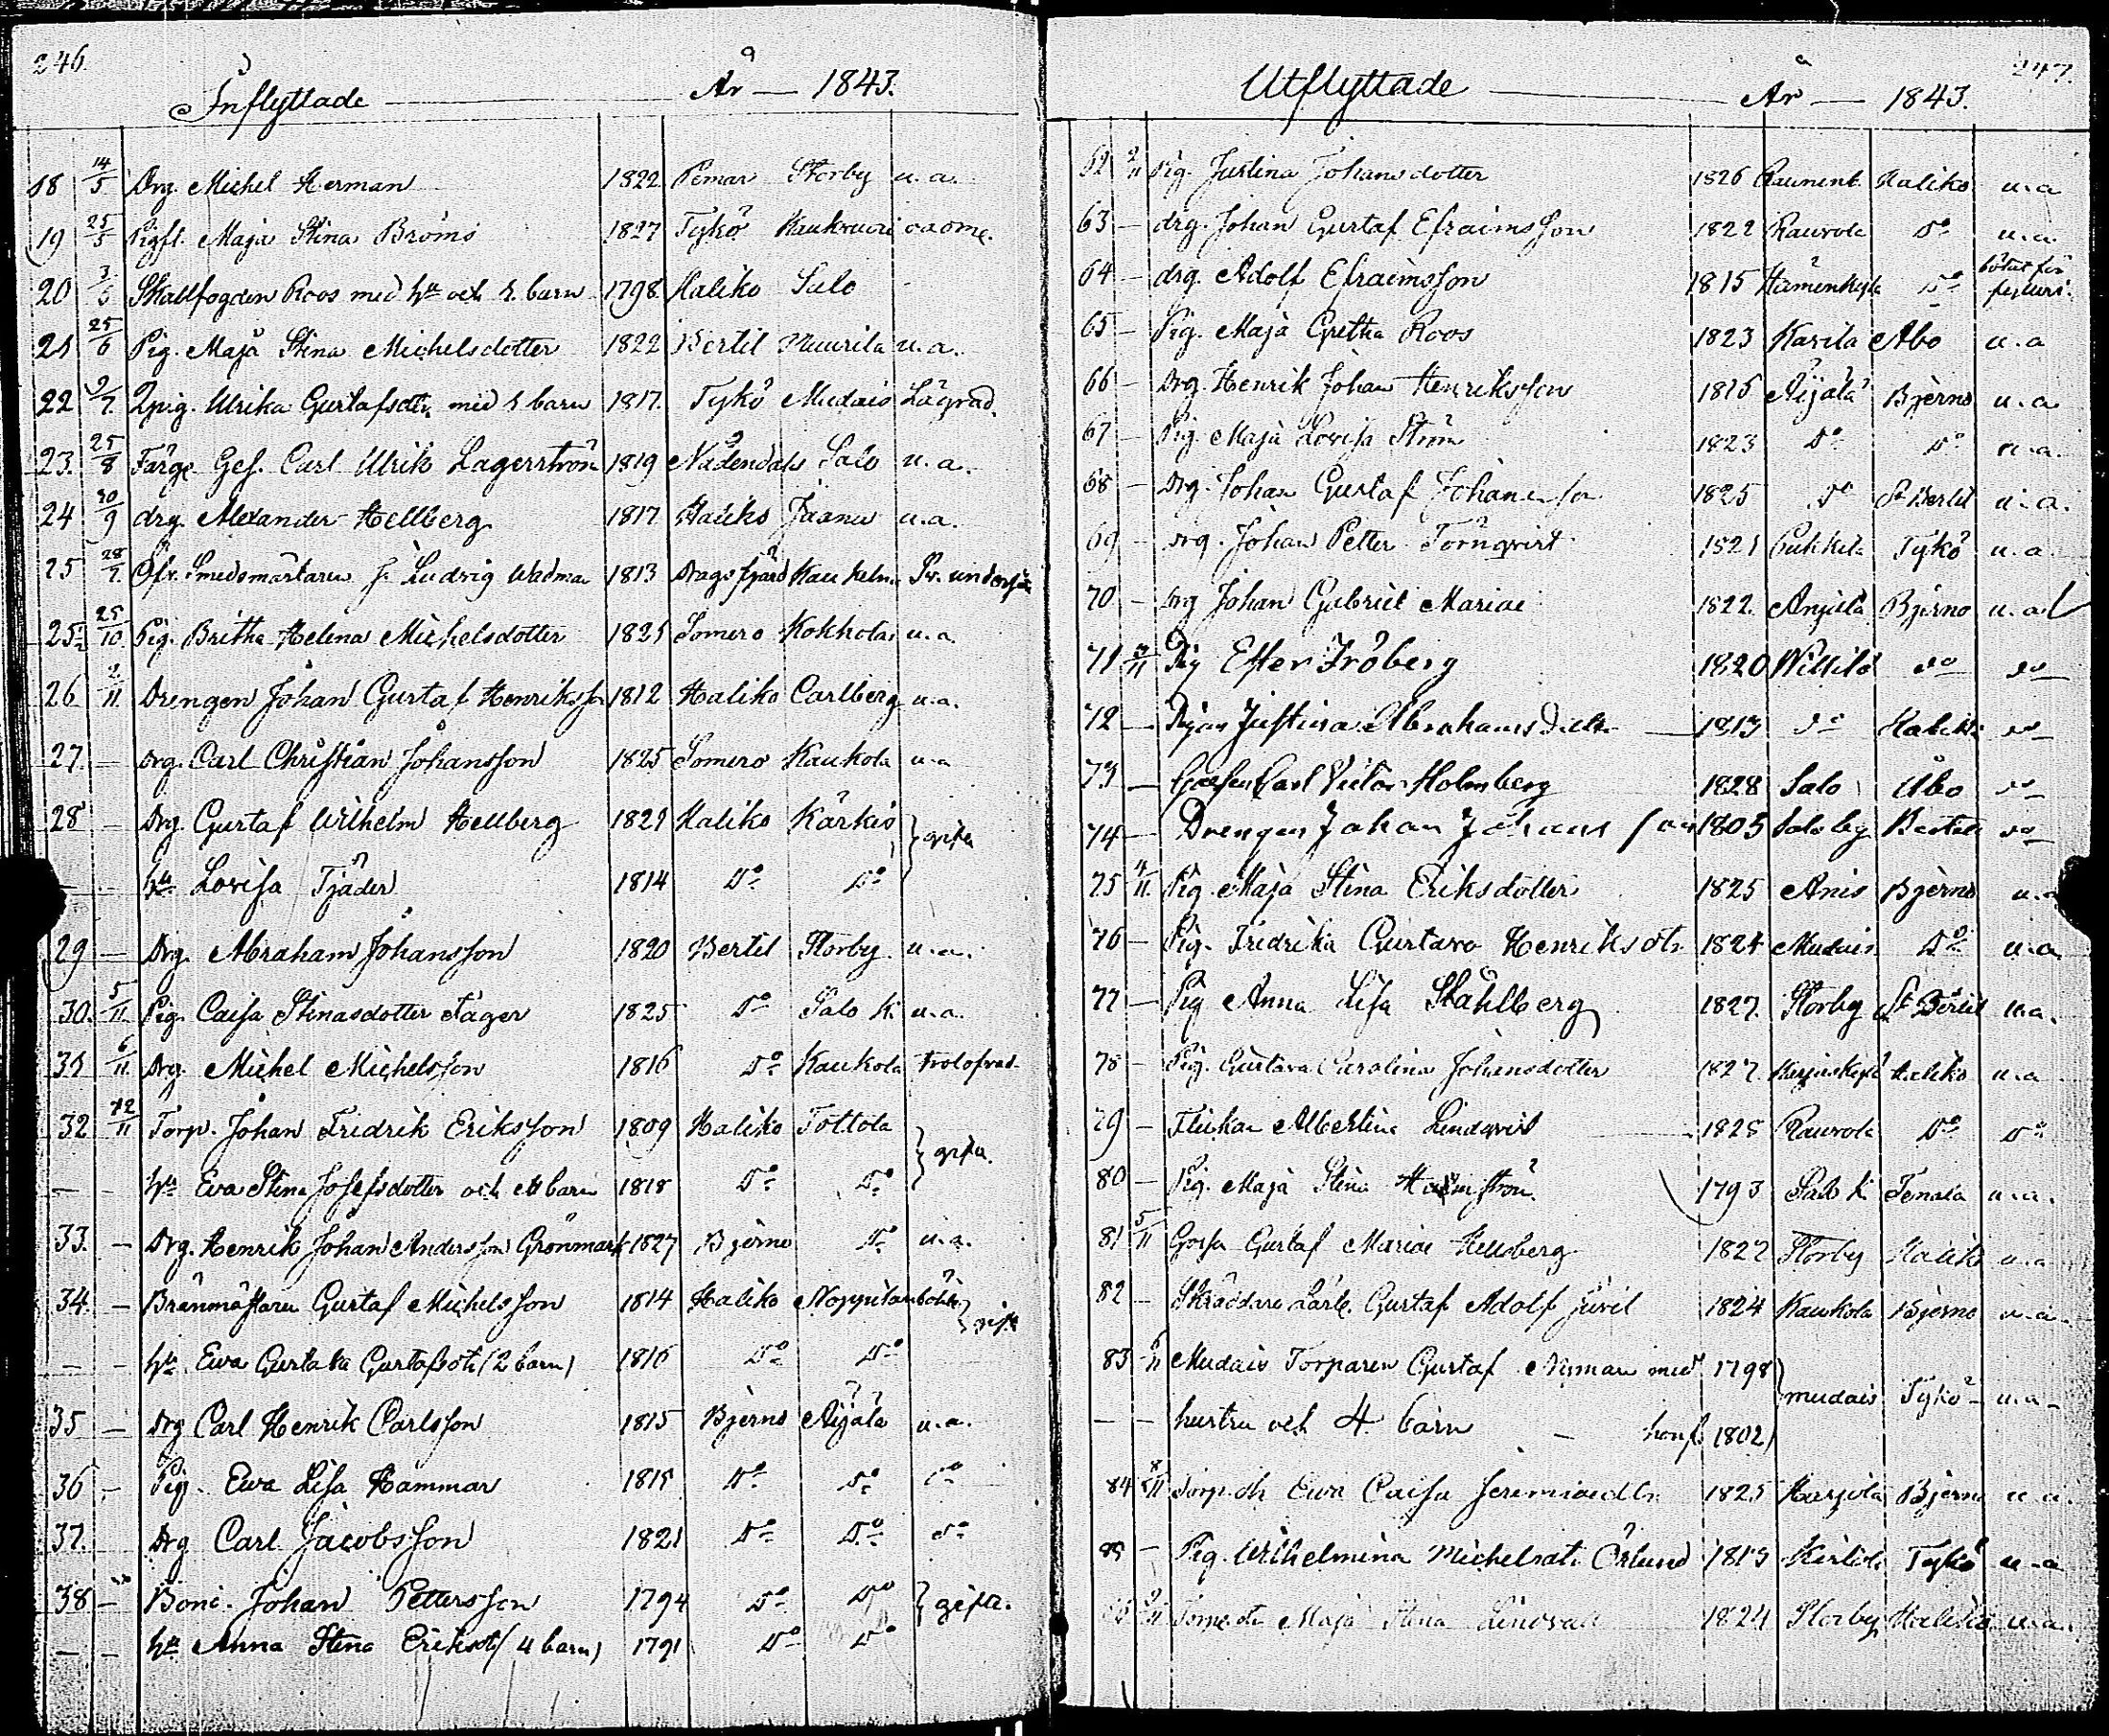 246.
Inflyttade År 1843.
18 14/5 Drg. Michel Herman 1822 Pemar Storby u.a.
19 25/5 Pigfl. Maja Stina Broms 1827 Tykö
20 3/6 Skallfogden Roos med hu och 1. barn 1798 Haliko Salo
21 25/6 Pig. Maja Stina Michelsdotter 1822 Bertil Muurila u.a.
22 9/7. Qpig. Ulrika Gustafsdtr. med 1 barn 1817. Tykö Mudais Lägrad.
23. 25/8 Färge. Ges. Carl Ulrik Lagerström 1819 Nådendals Salo u.a.
24 30/9 drg. Alexander Hellberg 1817 Haliko Jaanu u.a.
25 28/7. Smedsmästaren Ludvig Wadman 1813 Dragsfjärd
25 25/10. Pig. Britha Helena Michelsdotter 1821 Somero Kokkola u.a.
26 2/11. Drengen Johan Gustaf Henriksson 1812 Haliko Carlberg u.a.
27. — Drg. Carl Christian Johansson 1825 Somero Kaukola u.a
28 — Drg. Gustaf Wilhelm Hellberg 1821 Haliko Kärkis } gifta
— — hu Lovisa Tjäder 1814 Do Do
29 — Drg. Abraham Johansson 1820 Bertil Storby. u.a.
30. 5/11. Pig. Caisa Stinasdotter Fager 1825 Do Salo K. u.a.
31 6/11. Drg. Michel Michelsson 1816 Do Kaukola trolofvad
32 12/11 Torp. Johan Fridrik Eriksson 1809 Haliko Tottola } gifta.
— — hu Eva Stina Josefsdotter och ett barn 1818 Do Do
33. — Drg. Henrik Johan Andersson Grönmark 1827 Bjerno Do u.a.
34. — Brännmästaren Gustaf Michelsson 1814 Haliko } gifta
— — hu. Ewa Gustava Gustafsdtr (2 barn) 1816 Do Do
35 — Drg Carl Henrik Carlsson 1815 Bjerno Aijälä u.a.
36 — Pig. Ewa Lisa Hammar 1815 Do Do Do
37. Drg Carl Jacobsson 1821 Do Do Do
38 — Bond. Johan Pettersson 1794 Do Do } gifta.
— — hu Anna Stina Eriksdtr (4 barn) 1791 Do Do
247.
Utflyttade År 1843.
62 2/11 Pig. Justina Johansdotter 1826 Haliko u.a
63 — drg. Johan Gustaf Efraimsson 1822 Rauvola Do u.a.
64 — drg. Adolf Efraimsson 1815 Hämenkylä Do bötat för
65 — Pig. Maja Gretha Roos 1823 Karila Abo u.a
66 — Drg. Henrik Johan Henriksson 1816 Aijälä Bjerno u.a
67 — Pig. Maja Lovisa Ström 1823 Do Do u.a.
68 — Drg. Johan Gustaf Johansson 1825 Do St Bertil u.a.
69 — Drg. Johan Petter Törnqvist 1821 Pukkila Tykö u.a
70 — Drg Johan Gabriel Mariae 1822. Anjala Bjerno u.a
71 3/11 Pig Ester Fröberg 1820 Willilä do do
72 — Pigan Justina Abrahams Dotter 1813 do Haliko do
73 — Gossen Carl Victor Holmberg 1828 Salo Åbo do
74 — Drengen Johan Johansson 1805 Saloby Bertil do
75 4/11. Pig. Maja Stina Eriksdotter 1825 Anis Bjerno u.a
76 — Pig. Fridrika Gustava Henriksdtr 1824 Mudais Do u.a
77 — Pig Anna Lisa Ståhlberg 1827. Storby St Bertil u.a.
78 — Pig. Gustava Carolina Johansdotter 1827. Haliko u.a
79 — Flickan Albertina Lindqvist 1828 Rauvola Do Do
80 — Pig. Maja Stina Holmström 1793 Salo K Tenala u.a.
81 5/11 Gossen Gustaf Mariae Hellsberg 1827 Storby Haliko u.a
82 — Skräddare Lärl. Gustaf Adolf Juvel 1824 Kaukola Bjerno u.a.
83 6/11 Mudais Torparen Gustaf Nyman med 1798 } mudais Tykö u.a
— — hustru och 4 barn — hon f 1802
84 8/11 Torp.dtr Ewa Caisa Jeremiaedtr 1825 Harjola Bjerno u.a.
85 — Pig. Wilhelmina Michelsdtr. Örlund 1815 Tykö u.a
Maja Stina 1824 Storby Haliko u.a.